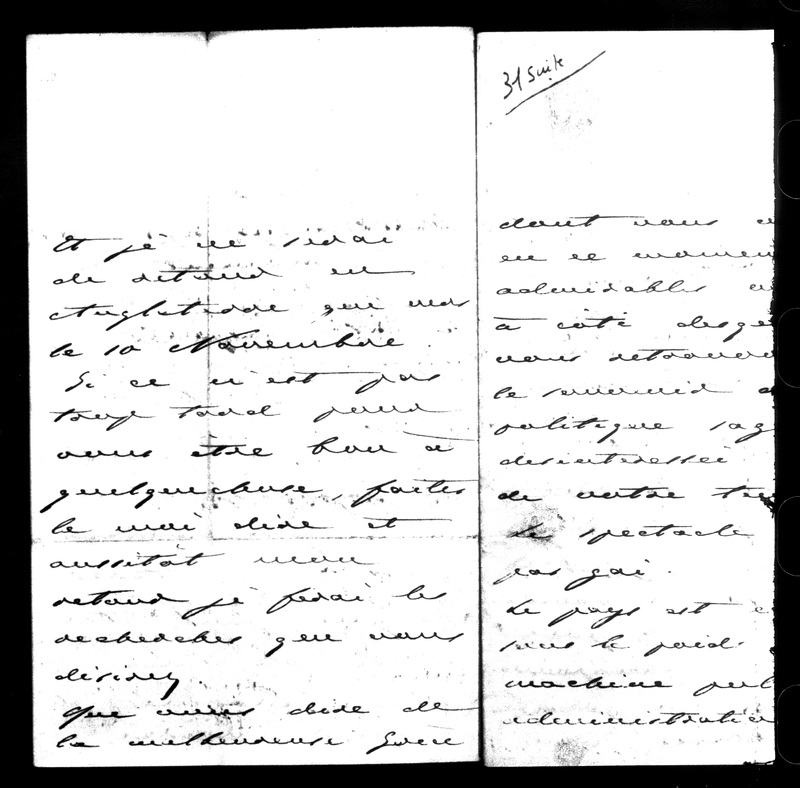 Et je ne serai
de retour en
Angleterre que vers
le 10 Novembre.
Si ce n'est pas
trop tard pour
vous être bon à
quelquechose, faites
le moi dire et
aussitôt mon
retour je ferai les
recherches que vous
désirez.
Que vous dire de
la malheureuse Grèce
31 suite
dont vous
en ce momen
admirables
à côté des
vous retrouv
le souvenir
politique sag
desinteressée
de votre
Le spectacle
pas gai.
Le pays est
sous le poids
machine
administrati